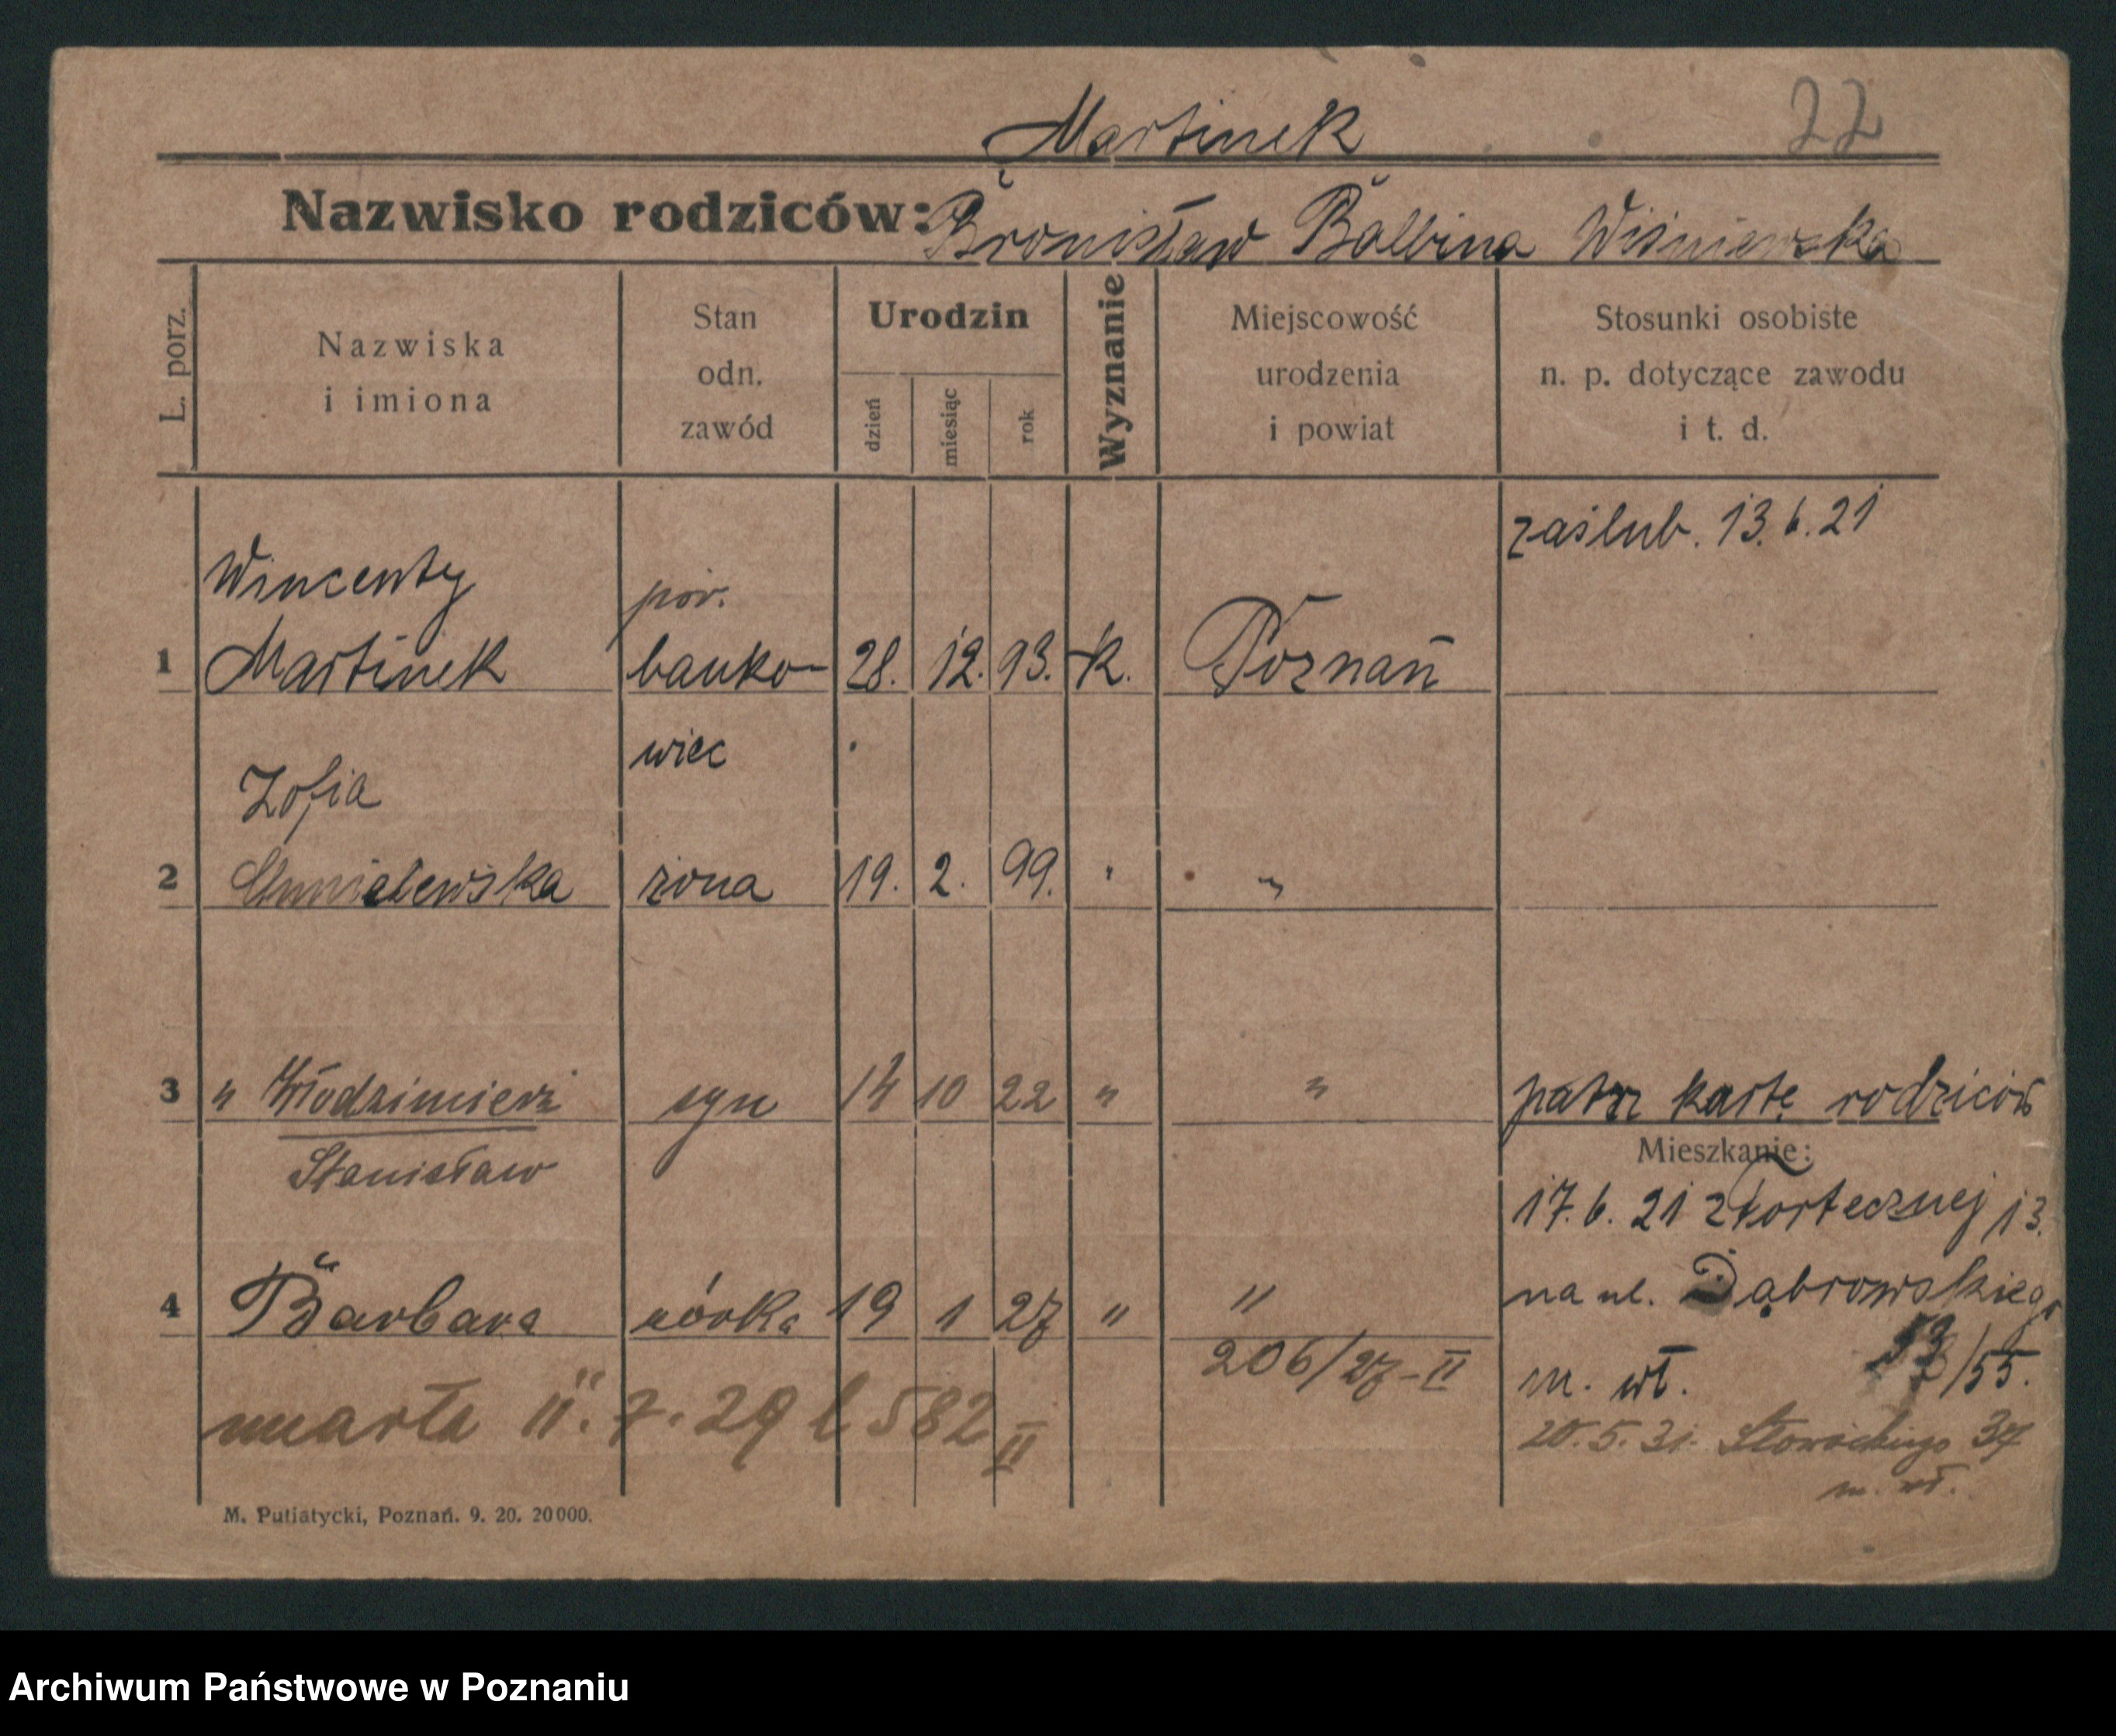 Martinek 22
Nazwisko rodziców: Bronisław Balbina Wiśniewska
L. porz.
Nazwiska
i imiona
Stan
odn.
zawód
Urodzin
dzień
miesiąc
rok
Wyznanie
Miejscowość
urodzenia
i powiat
Stosunki osobiste
n. p. dotyczące zawodu
i t. d.
zaślub. 13. 6. 21
Wincenty por.
1 Martinek banko- 28. 12. 93. k. Poznań
wiec
Zofia
2 żona 19. 2. 99. " "
3 " Włodzimierz syn 14 10 22 " " patrz kartę rodziców
Stanisław
Mieszkanie:
17. 6. 21 z Fortecznej 13.
4 Barbara córka 19 1 27 " "
na ul. Dąbrowskiego
206/27-II
m. wł. /55.
umarła 11. 7. 29 l 582 II
20. 5. 31. Słowackiego 37
m. wł.
M. Putiatycki, Poznań. 9. 20. 20000.
Archiwum Państwowe w Poznaniu